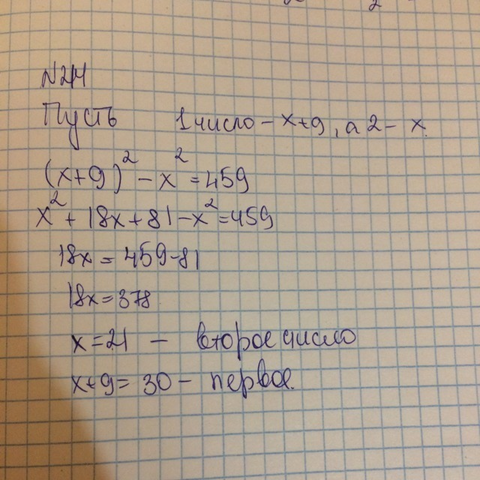 N244
Пусть 1 число - x+9, а 2 - x.
(x+9)² - x² = 459
x² + 18x + 81 - x² = 459
18x = 459 - 81
18x = 378
x = 21 - второе число
x+9 = 30 - первое.